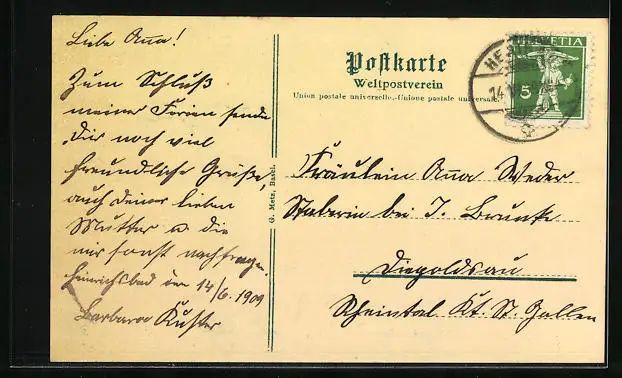 Liebe Anna!
Zum Schluß
meiner Ferien sende
Dir noch viel
freundliche Grüße,
auch Deiner lieben
Mutter u. die
mir sonst nachfragen.
Heinrichsbad den 14/6. 1909
Barbara Kuster
Postkarte
Weltpostverein
Union postale universelle.-Unione postale universale
G. Metz, Basel.
HELVETIA
5
HE
14.
Fräulein Anna Weder
bei J.
Diepoldsau
Rheintal Kt. St. Gallen